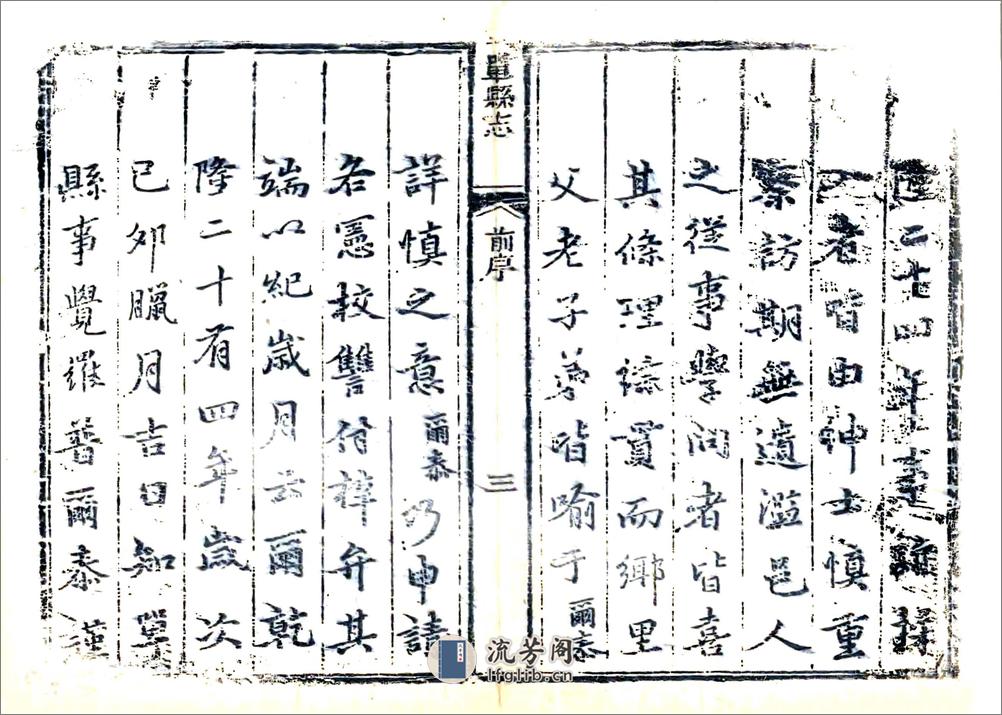 二十四年
者皆由紳士慎重
察訪期無遺濫邑人
之從事學問者皆喜
其條理綜貫而鄉里
父老子弟皆喻于爾泰
單縣志
前序
三
詳慎之意爾泰乃申請
各憲校讐付梓弁其
端以紀歲月云爾乾
隆二十有四年歲次
己夘臘月吉日知單
縣事覺羅普爾泰謹
流芳阁
lfglib.cn